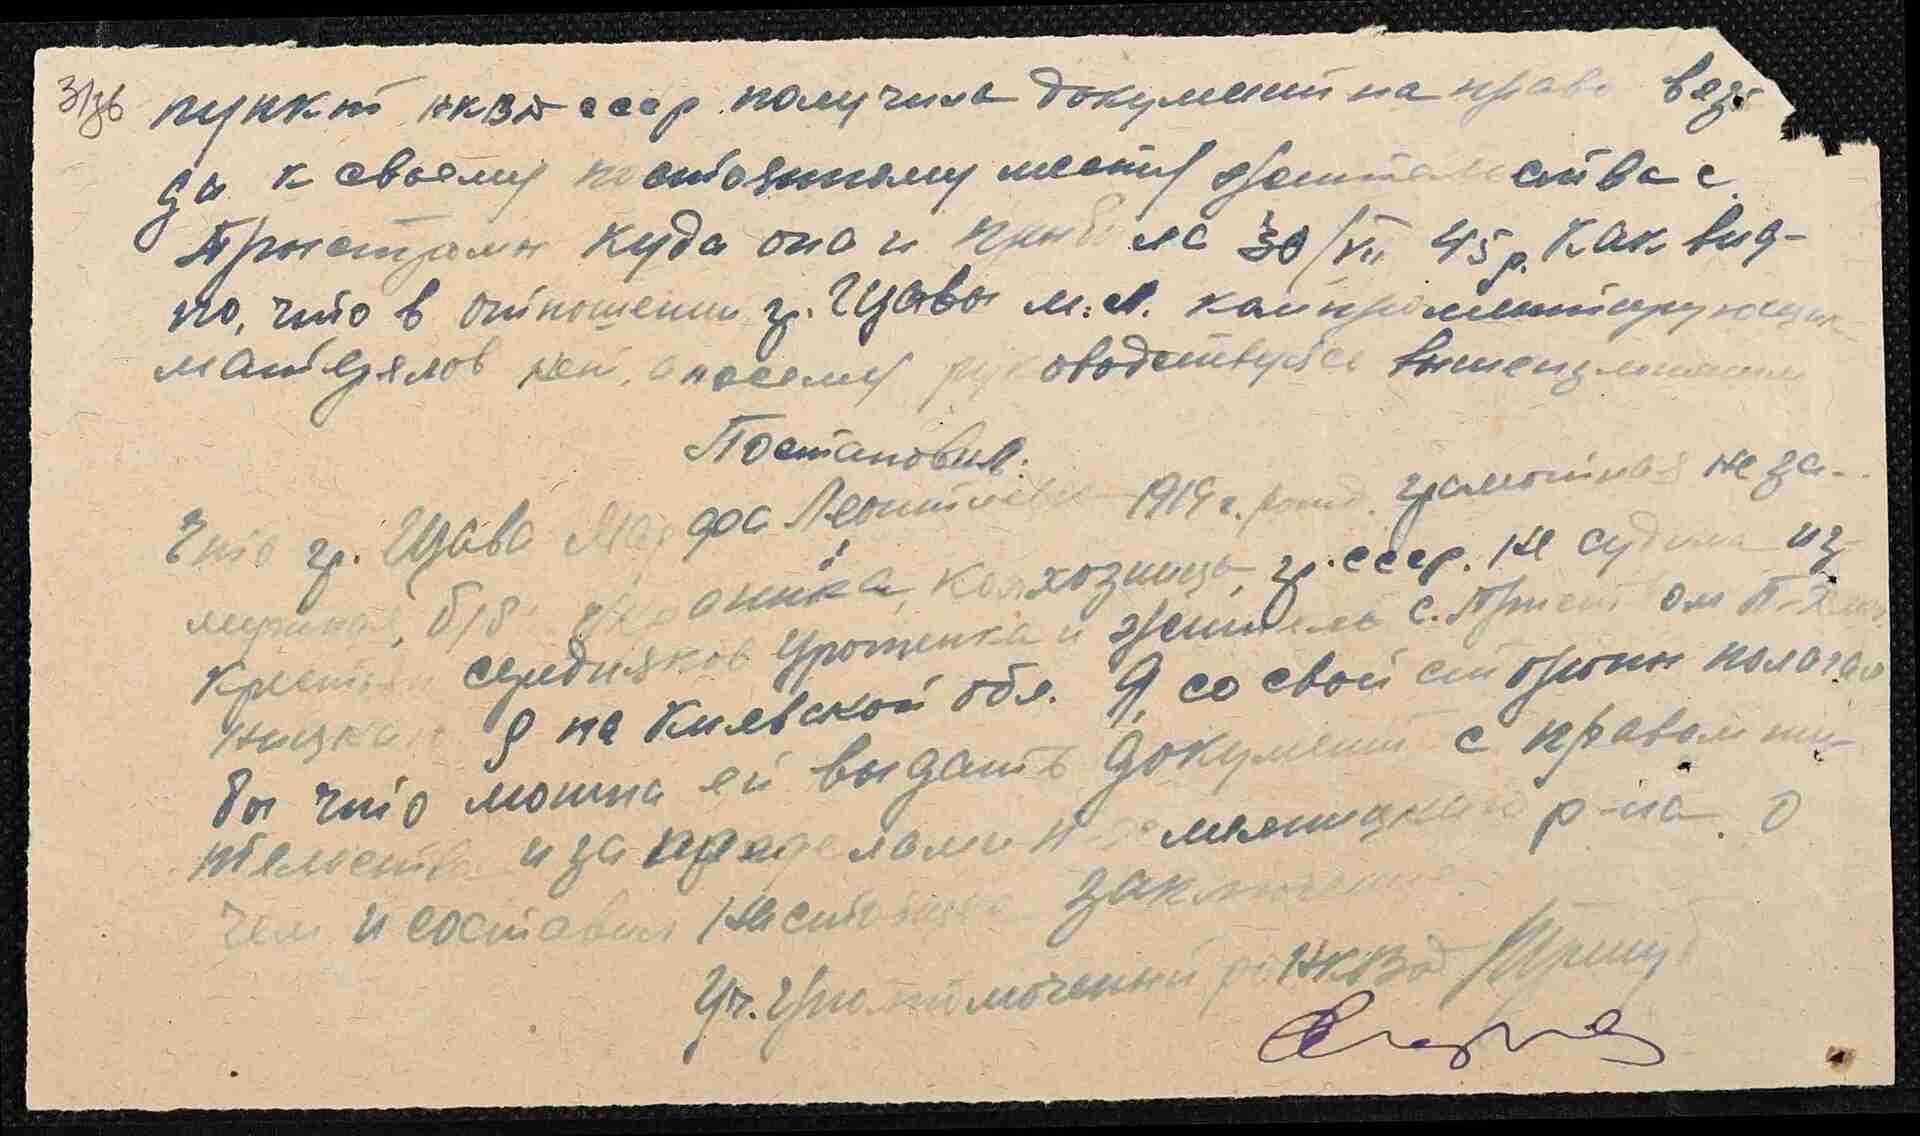 пункт НКВД СССР получила документ на право везь-
да к своему постоянному месту жительства с.
Пристромы куда она и прибыла 30/VII 45 р. Как вид-
но, что в отношении гр. Щавы М.Л. компрометирующих
матерялов нет, а посему руководствуясь
Постановил:
Что гр. Щава Марфа Леонтьевна 1919 г. рожд. грамотная не за-
мужная, б/п Украинка, колхозница, гр. СССР. не судима из
крестьян середняков Уроженка и житель с. Пристром П-Хмель
ницкаго р на Киевской обл. Я со свой стороны полагал
бы что можна ей выдать документ с правом жи-
тельства и за пределами П- р-на. О
чем и составил настоящее заключение.
Уч. Уполномоченный НКВД